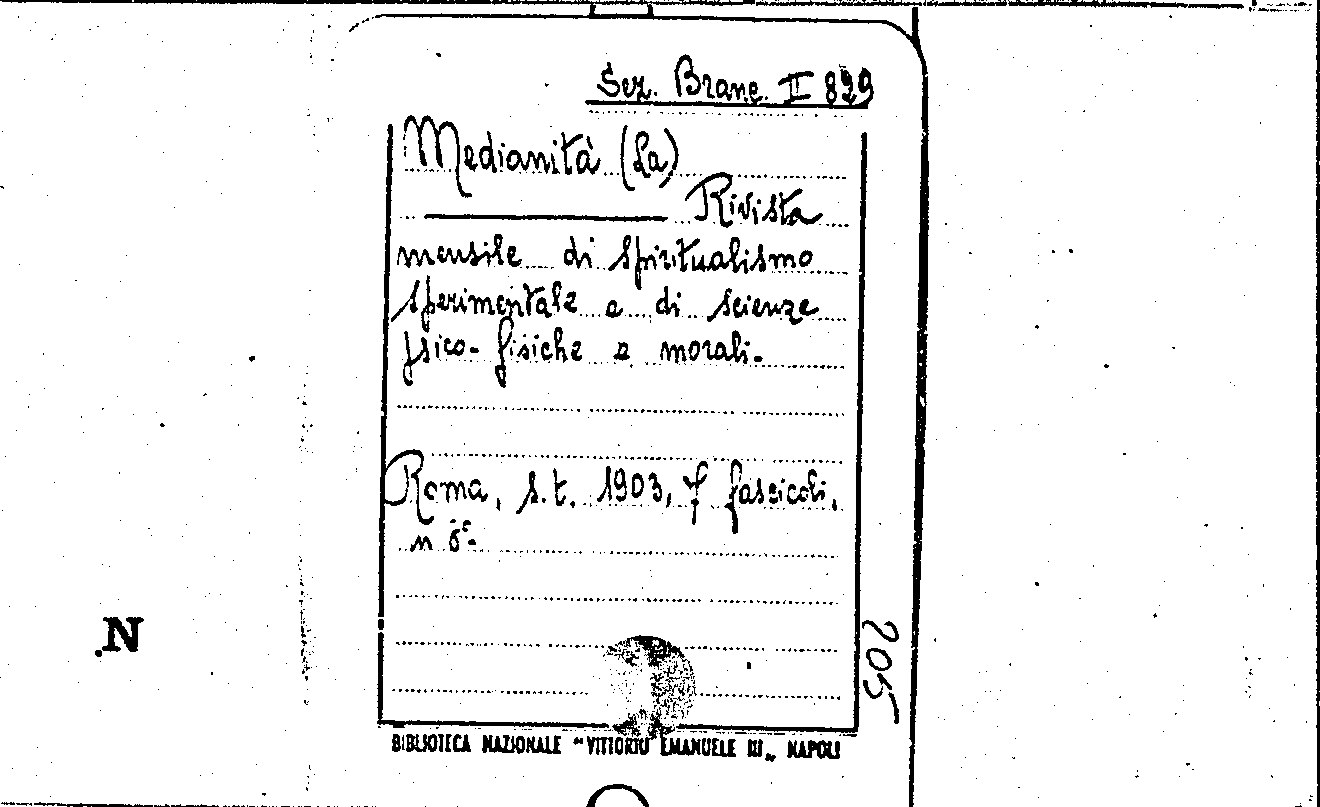 Sez. Branc. II 829
Medianità (La)
Rivista
mensile di spiritualismo
sperimentale e di scienze
psico-fisiche e morali.
Roma, s.t. 1903, 7 fascicoli.
in 8°.
205
.N
BIBLIOTECA NAZIONALE "VITTORIO EMANUELE III„ NAPOLI